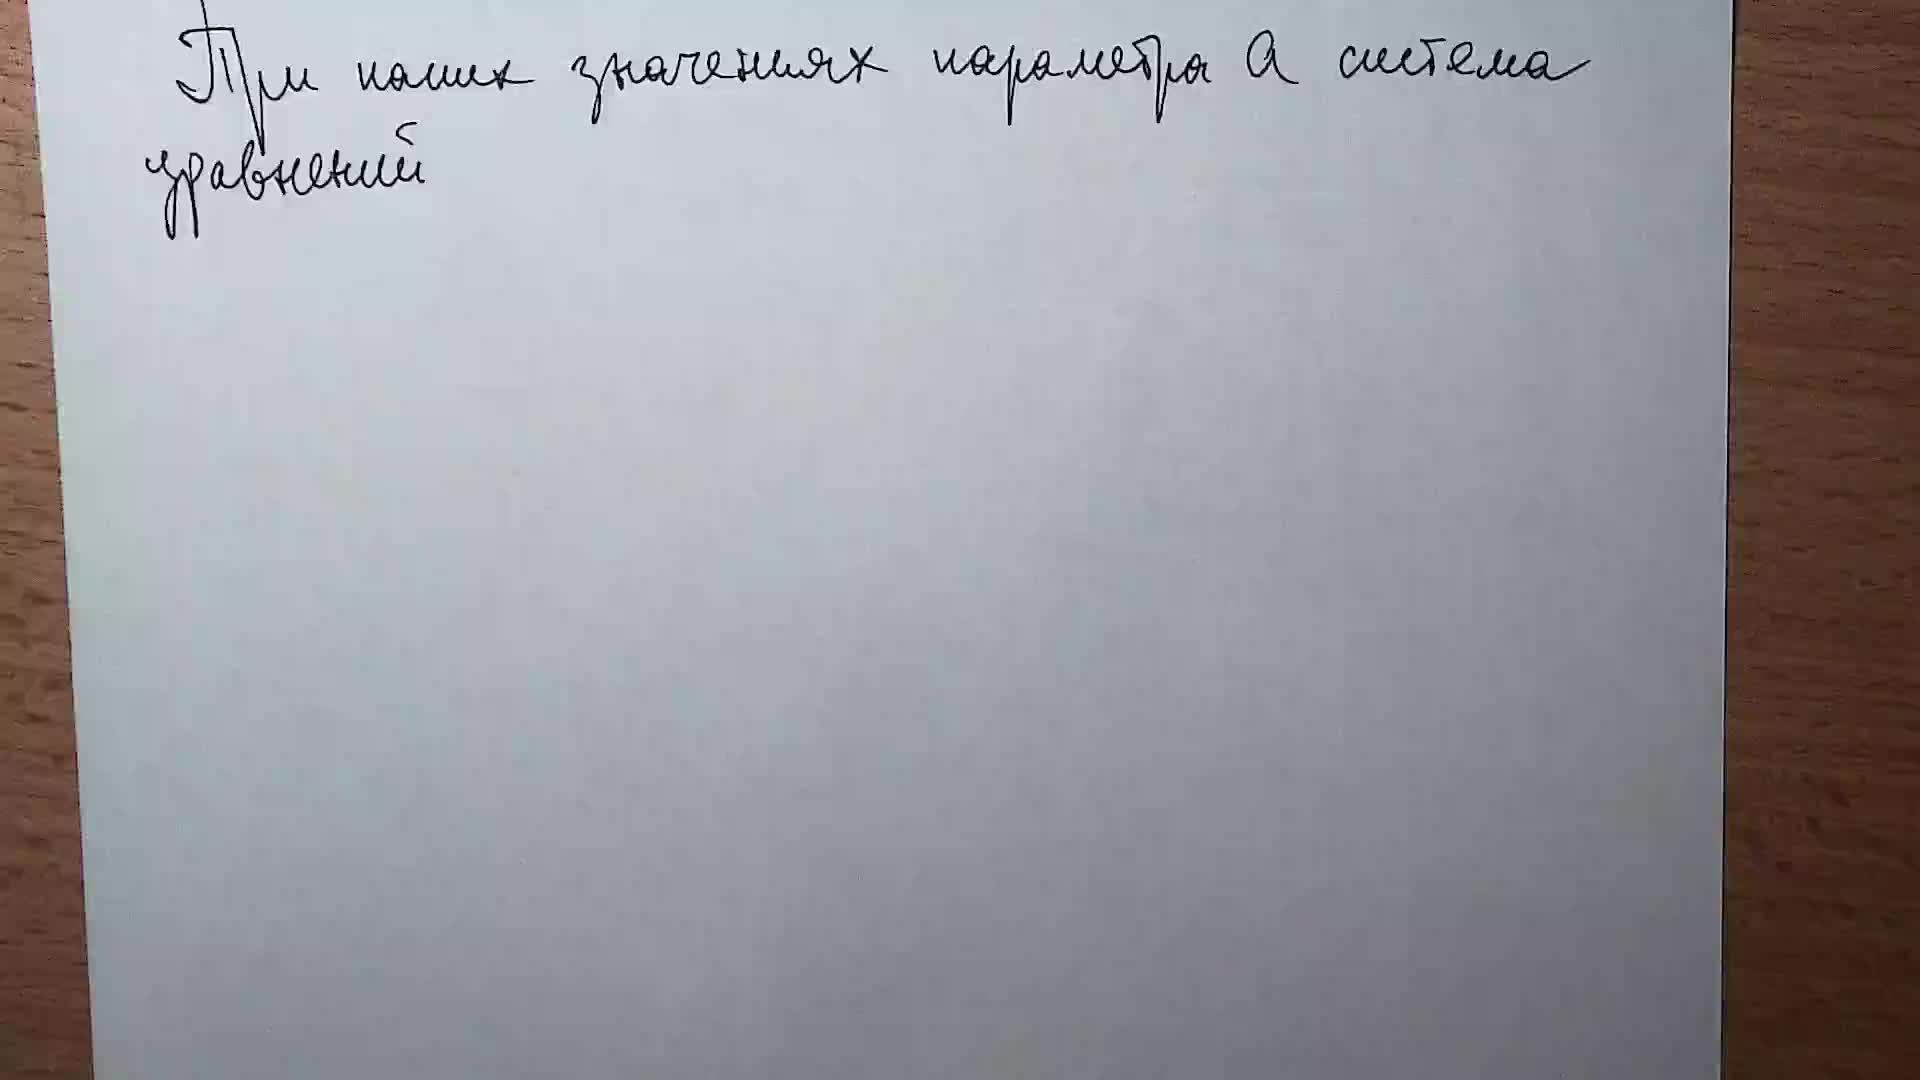 При каких значениях параметра а система
уравнений